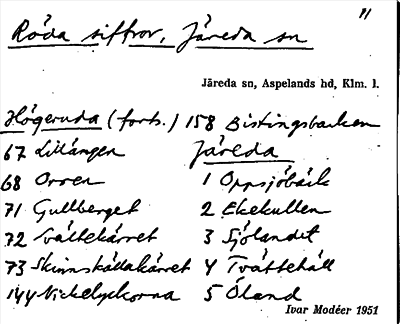 11
Röda siffror, Järeda sn
Järeda sn, Aspelands hd, Klm. l.
Högeruda (forts.) 158 Bistingsbacken
67 Lillängen Järeda
68 Orren 1 Oppsjöbäck
71 Gullberget 2 Ekekullen
72 Svältekärret 3 Sjölandet
73 Skinnskådakärret 4 Tvättehåll
144 Nickelyckorna 5 Öland
Ivar Modéer 1951